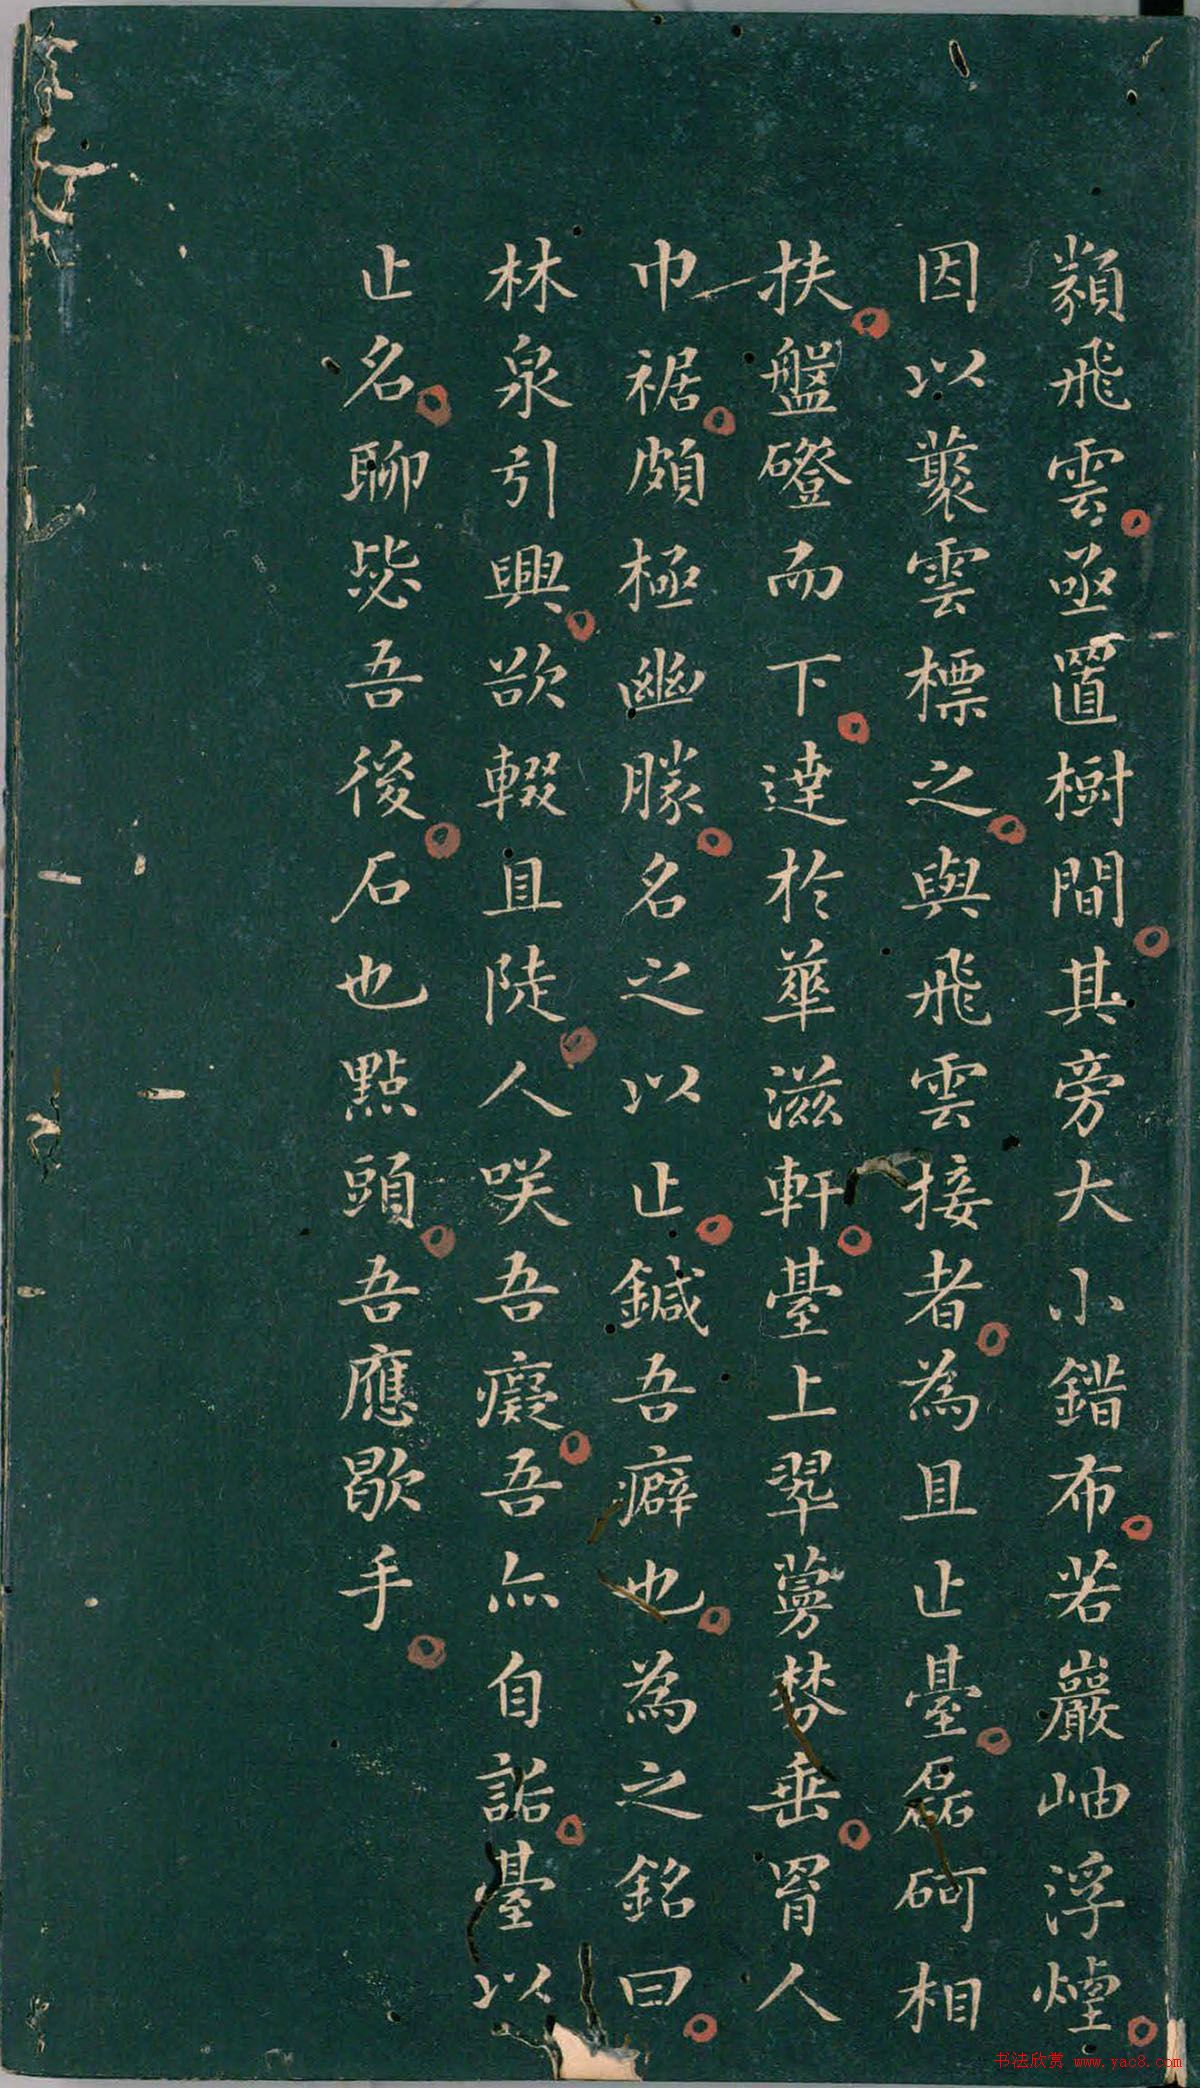 纇飛雲亟置樹間其旁大小錯布若巖岫浮煙
因以叢雲標之與飛雲接者為且止臺磊砢相
扶盤磴而下達於華滋軒臺上翠蔓棼垂罥人
巾裾頗極幽勝名之以止鍼吾癖也為之銘曰
林泉引興欲輟且陡人咲吾癡吾亦自詬臺以
止名聊毖吾後石也點頭吾應歇手
书法欣赏 www.yac8.com